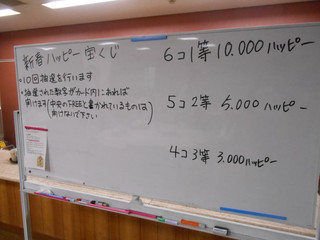 新春ハッピー宝くじ
・10回抽選を行います
・抽選された数字がカード内にあれば
向けます(中央のFREEと書かれているものは
向けないで下さい)
6コ1等 10.000ハッピー
5コ2等 5.000ハッピー
4コ3等 3.000ハッピー